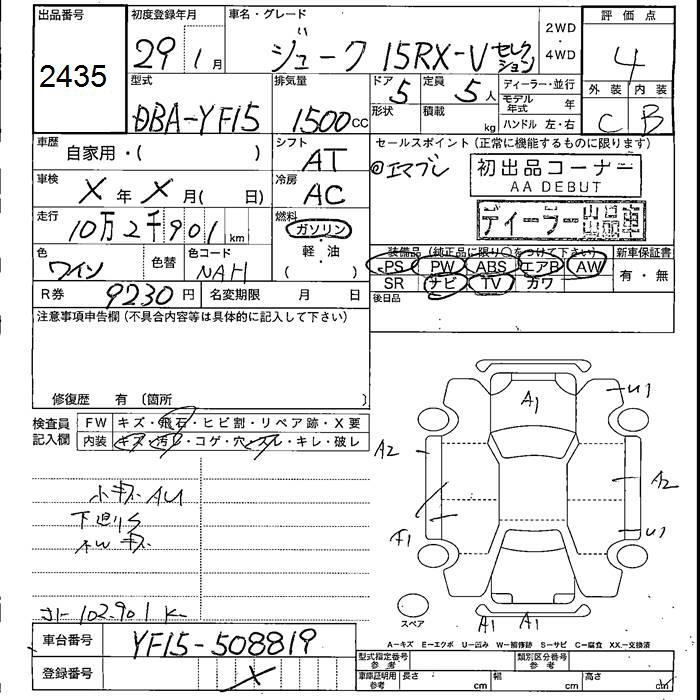 出品番号 初度登録年月 車名・グレード 2WD ・ 4WD 評価点
2435 29 1月 ジューク 15RX-V セレクション 4
型式 排気量 ドア 5 定員 5人 ディーラー・並行 外装 内装
DBA-YF15 1500cc 形状 積載 kg モデル年式 年 C B
ハンドル 左・右
車歴 自家用・( ) シフト AT セールスポイント(正常に機能するものに限ります)
◎エマブレ 初出品コーナー
AA DEBUT
車検 X年X月( 日) 冷房 AC
ディーラー出品車
走行 10万2千901km 燃料 ガソリン
軽・油
( )
色 ワイン 色替 色コード NAH 装備品(純正品に限り○をつけて下さい) 新車保証書
PS PW ABS エアB AW 有・無
SR ナビ TV カワ
R券 9230円 名変期限 月 日 後日品
注意事項申告欄(不具合内容等は具体的に記入して下さい)
修復歴 有〔箇所 〕
検査員記入欄 FW キズ・飛石・ヒビ割・リペア跡・X要
内装 キズ・汚レ・コゲ・穴・スレ・キレ・破レ
小キズ AU
下廻り
キズ
A1
U1
A2
A2
F1
U1
A1 A1
スペア
102.901K
A-キズ E-エクボ U-凹み W-補修跡 S-サビ C-腐食 XX-交換済
車台番号 YF15-508819
型式指定番号 参考 類別区分番号 参考
登録番号 X
車庫証明用 参考 長さ cm 幅 cm 高さ cm